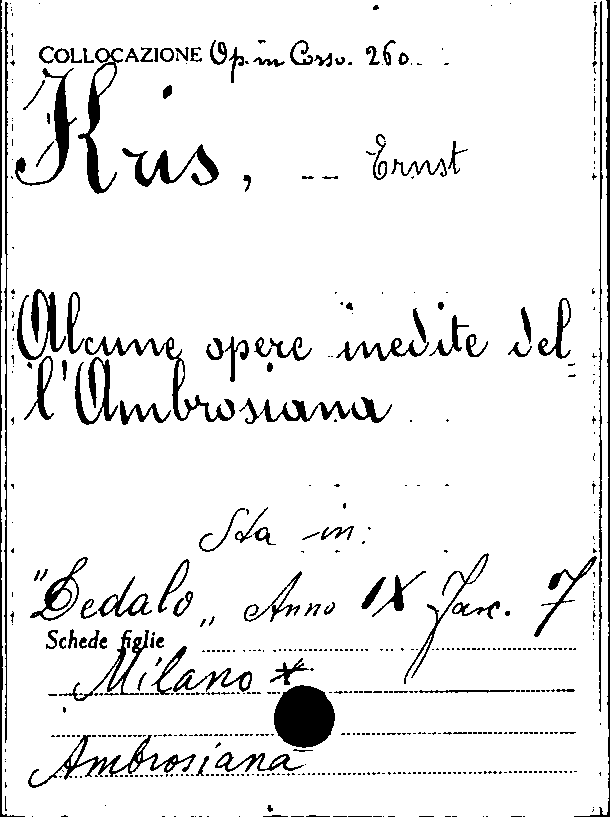 COLLOCAZIONE Op. in Corso. 260.
Kris, -- Ernst
Alcune opere inedite del=
l'Ambrosiana
Sta in:
"Dedalo„ Anno IX Fasc. 7
Schede figlie
Milano *
Ambrosiana